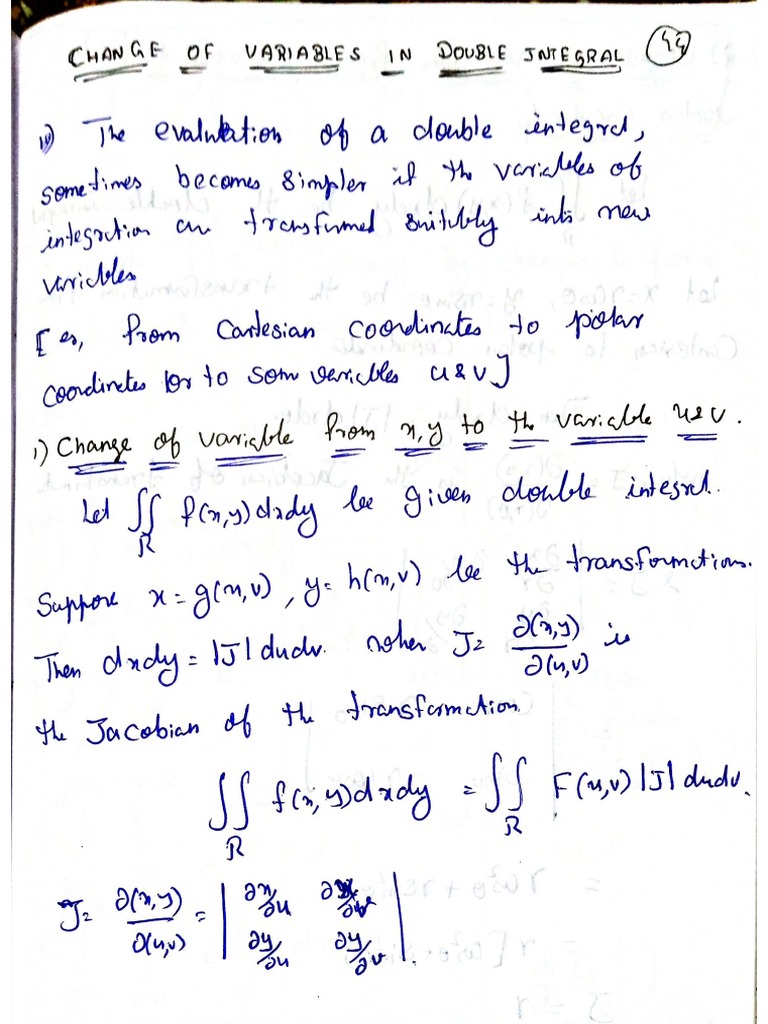 CHANGE OF VARIABLES IN DOUBLE INTEGRAL
The evaluation of a double integral,
sometimes becomes simpler if the variables of
integration are transformed suitably into new
variables
[ es, from Cartesian coordinates to polar
coordinates or to some variables u & v ]
1) Change of variable from x, y to the variable u & v.
Let ∬ f(x,y) dxdy be given double integral.
R
Suppose x = g(u,v), y = h(u,v) be the transformations.
Then dxdy = |J| dudv. where J = ∂(x,y)/∂(u,v) is
the Jacobian of the transformation.
∬ f(x,y) dxdy = ∬ F(u,v) |J| dudv.
R R
J = ∂(x,y)/∂(u,v) = | ∂x/∂u ∂x/∂v |
| ∂y/∂u ∂y/∂v |.